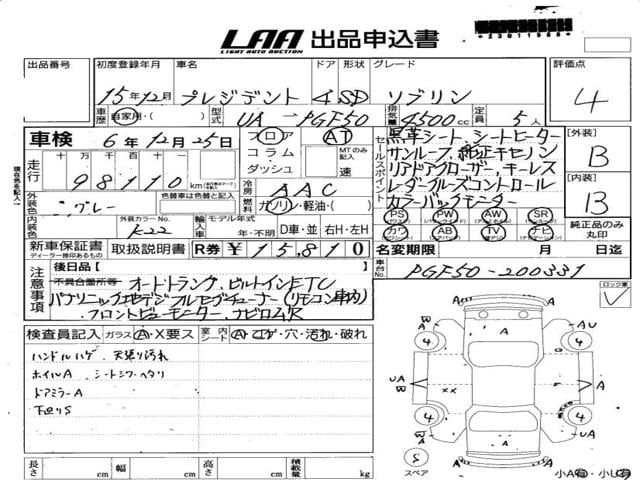 LAA 出品申込書
LIGHT AUTO AUCTION
出品番号 初度登録年月 車名 ドア 形状 グレード 評価点
15年12月 プレジデント 4 SD ソブリン 4
車歴 自家用・( ) 型式 UA-PGF50 排気量 4500cc 定員 5人
車検 6年12月25日 フロア AT
コラム
ダッシュ
MTのみ記入
速
セールスポイント
黒革シート、シートヒーター
サンルーフ、純正キセノン
リアドアクローザー、キーレス
レーダークルーズコントロール
カラーバックモニター
【外装】
B
【内装】
B
現在色を記入
走行 十万 万 千 百 十
98110 km
冷房 AAC
外装色 グレー 色替車は色替と記入
燃料 ガソリン・軽油・( )
PS PW AW SR
カワ AB TV ナビ
純正品のみ丸印
内装色 外装カラーNo. K22
輸入車 モデル年式
年・不明 D車・並 右H・左H
新車保証書 取扱説明書 R券 ¥15,810
ディーラー捺印あるもの
名変期限 月 日迄
車台No. PGF50-200331
注意事項
後日品 [ ]
不具合箇所等 オートトランク、ビルトインETC
パナソニック地デジフルセグチューナー(リモコン車内)
フロントビューモニター、ナビロム欠
ロック車
検査員記入 ガラス A・X要ス 室内 シート A・コゲ・穴・汚れ・破れ
ハンドルハゲ 天張り汚れ
ホイルA シートシワ・ヘタリ
ドアミラーA
下廻りS
A
A
A
4
4
4
4
UA
B
A
××
A
UA
S
スペア
小A
長さ cm 幅 cm 高さ cm 積載量 kg